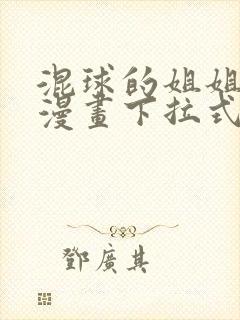 混球的姐姐
漫畫下拉式
鄧廣其